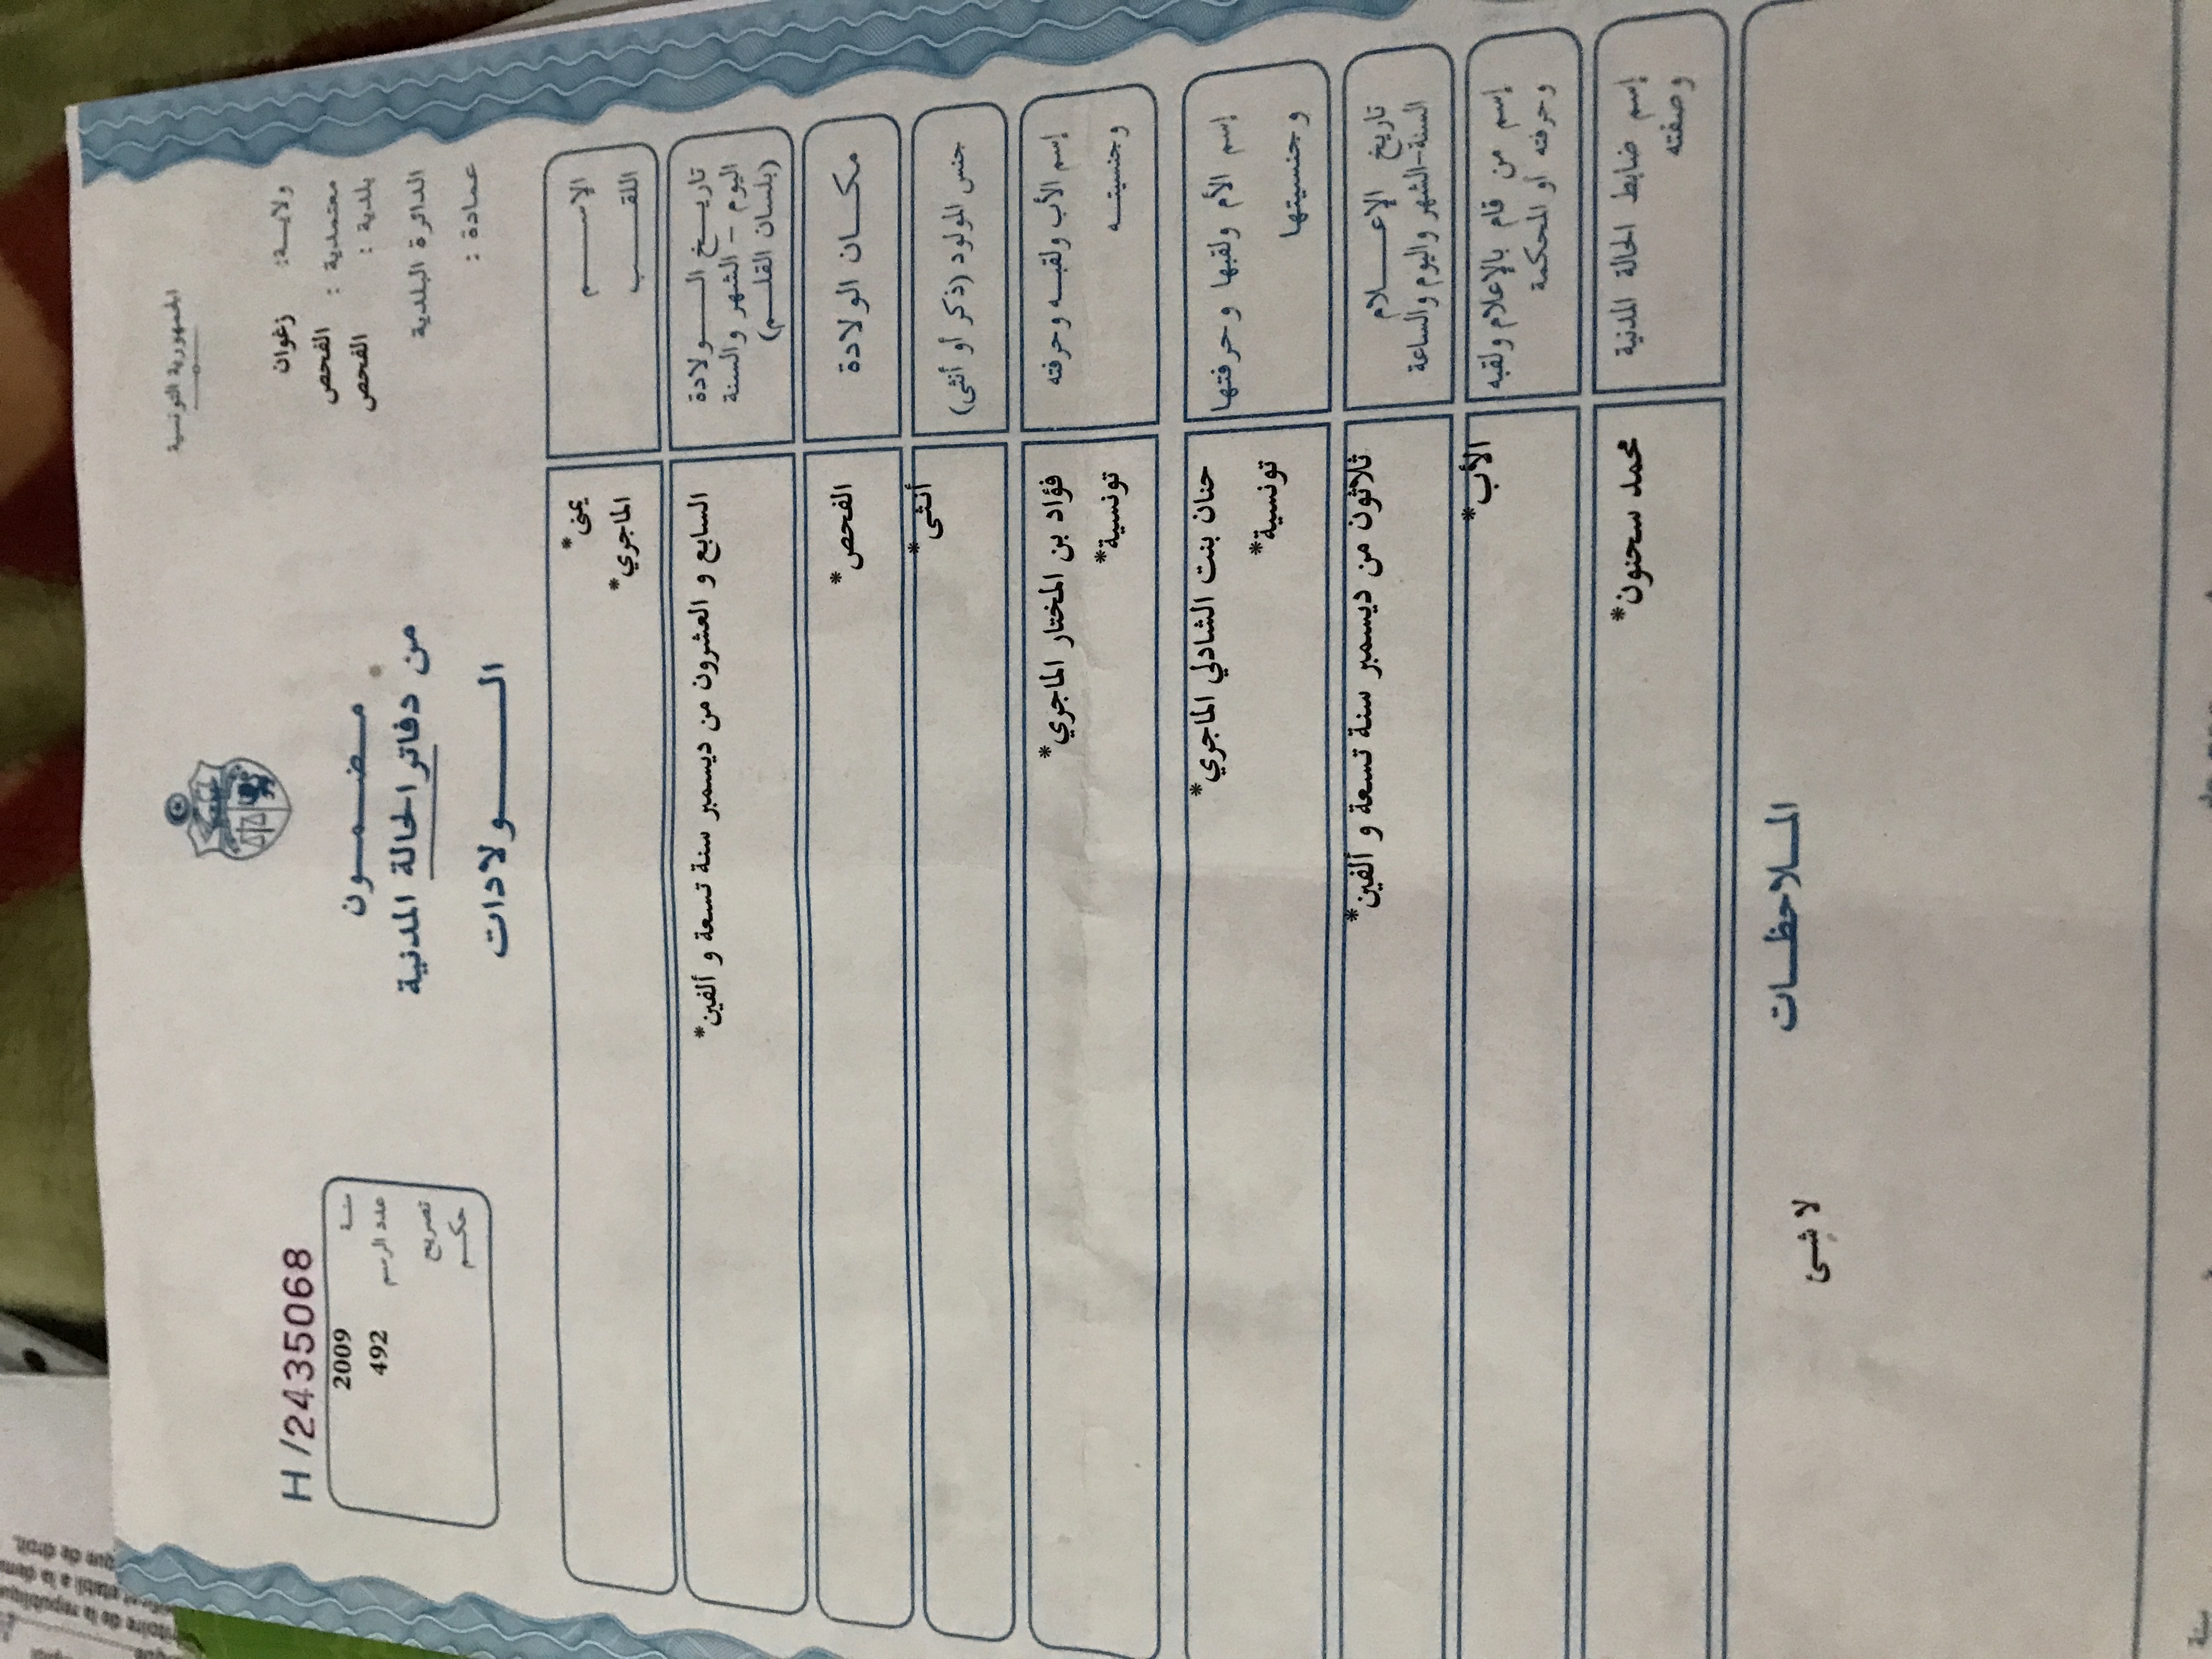 الجمهورية التونسية
ولاية: زغوان
معتمدية : الفحص
بلدية : الفحص
الدائرة البلدية
عمادة :
مضمون
من دفاتر الحالة المدنية
الولادات
H/2435068
سنة 2009
عدد الرسم 492
تصريح
حكم
الإسم يمنى*
اللقب الماجري*
تاريخ الولادة
اليوم - الشهر والسنة
(بلسان القلم)
السابع و العشرون من ديسمبر سنة تسعة و ألفين*
مكان الولادة الفحص*
جنس المولود (ذكر أو أنثى) أنثى*
إسم الأب ولقبه وحرفته فؤاد بن المختار الماجري*
وجنسيته تونسية*
إسم الأم ولقبها وحرفتها حنان بنت الشادلي الماجري*
وجنسيتها تونسية*
تاريخ الإعلام
السنة-الشهر واليوم والساعة
ثلاثون من ديسمبر سنة تسعة و ألفين*
إسم من قام بالإعلام ولقبه
وحرفته أو المحكمة
الأب*
إسم ضابط الحالة المدنية
وصفته
محمد سحنون*
الملاحظات
لا شئ
سنة
que de droit.